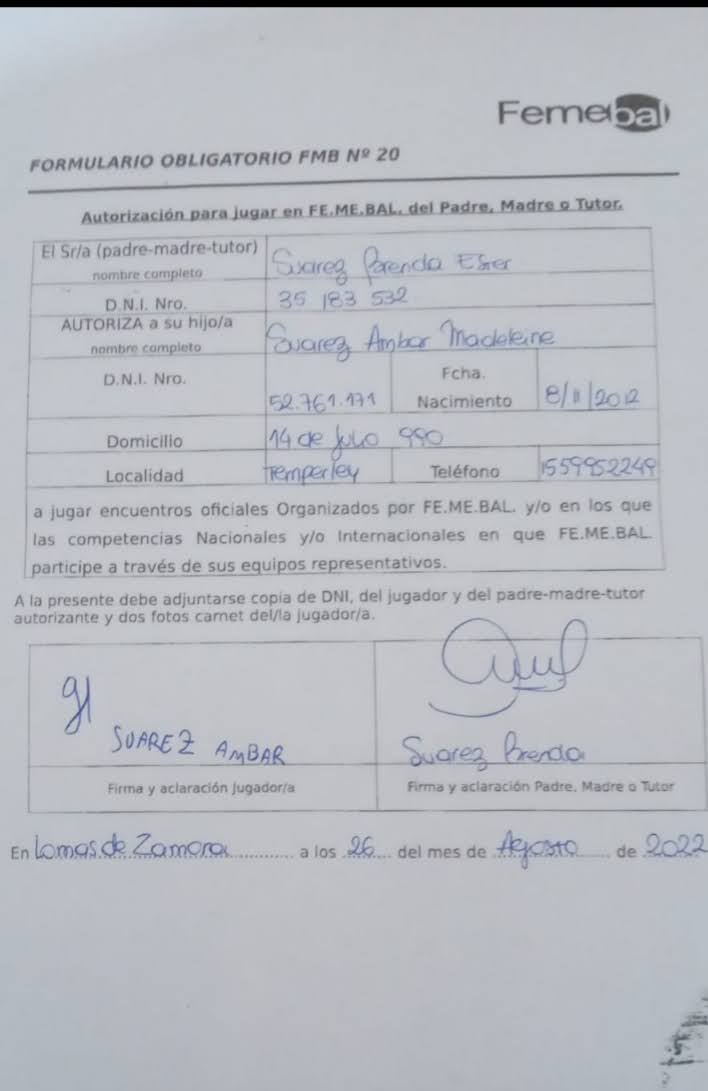 Femebal
FORMULARIO OBLIGATORIO FMB Nº 20
Autorización para jugar en FE.ME.BAL. del Padre, Madre o Tutor.
El Sr/a (padre-madre-tutor)
nombre completo
Suarez Brenda Ester
D.N.I. Nro.
35 183 532
AUTORIZA a su hijo/a
nombre completo
Suarez Ambar Madeleine
D.N.I. Nro.
52.761.171
Fcha.
Nacimiento
8/11/2012
Domicilio
14 de Julio 990
Localidad
Temperley
Teléfono
1559952249
a jugar encuentros oficiales Organizados por FE.ME.BAL. y/o en los que
las competencias Nacionales y/o Internacionales en que FE.ME.BAL.
participe a través de sus equipos representativos.
A la presente debe adjuntarse copia de DNI, del jugador y del padre-madre-tutor
autorizante y dos fotos carnet del/la jugador/a.
SUAREZ AMBAR
Suarez Brenda
Firma y aclaración Jugador/a
Firma y aclaración Padre, Madre o Tutor
En Lomas de Zamora a los 26 del mes de Agosto de 2022